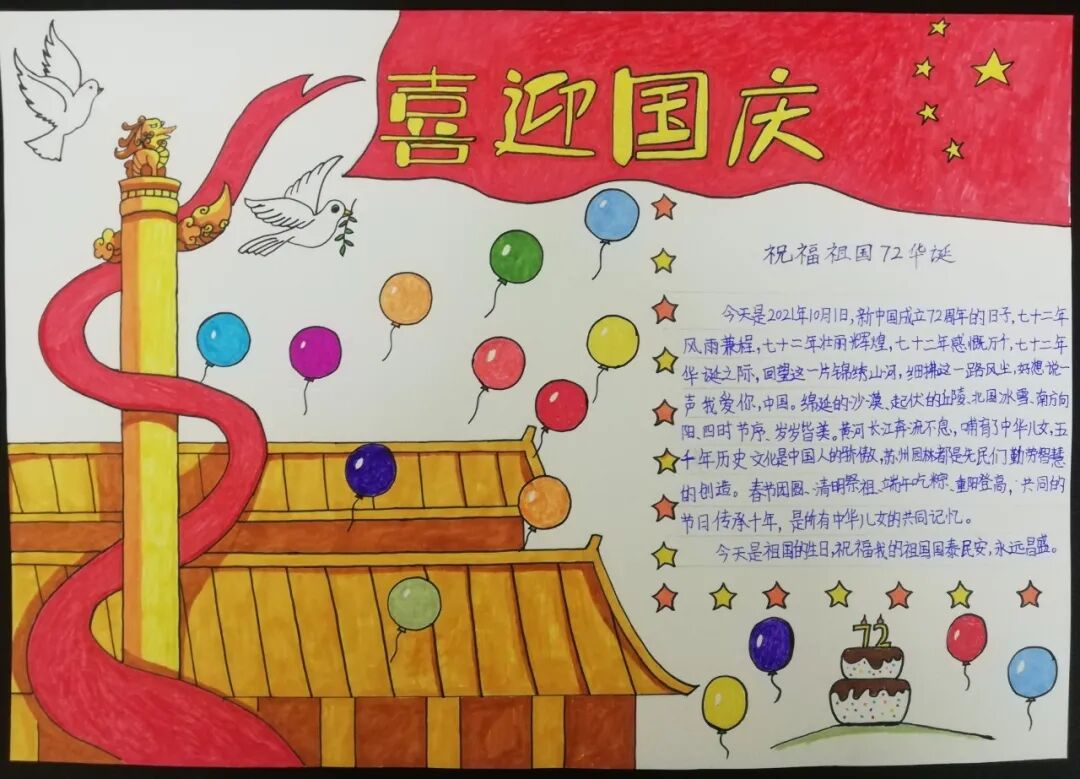 喜迎国庆
祝福祖国72华诞
今天是2021年10月1日,新中国成立72周年的日子,七十二年
风雨兼程,七十二年壮丽辉煌,七十二年感慨万千,七十二年
华诞之际,回望这一片锦绣山河,细拂这一路风尘,好想说一
声我爱你,中国。绵延的沙漠、起伏的丘陵、北国冰雪、南方向
阳、四时节序、岁岁皆美。黄河长江奔流不息,哺育了中华儿女,五
千年历史文化是中国人的骄傲,苏州园林都是先民们勤劳智慧
的创造。春节团圆、清明祭祖、端午吃粽、重阳登高,共同的
节日传承千年,是所有中华儿女的共同记忆。
今天是祖国的生日,祝福我的祖国国泰民安,永远昌盛。
72